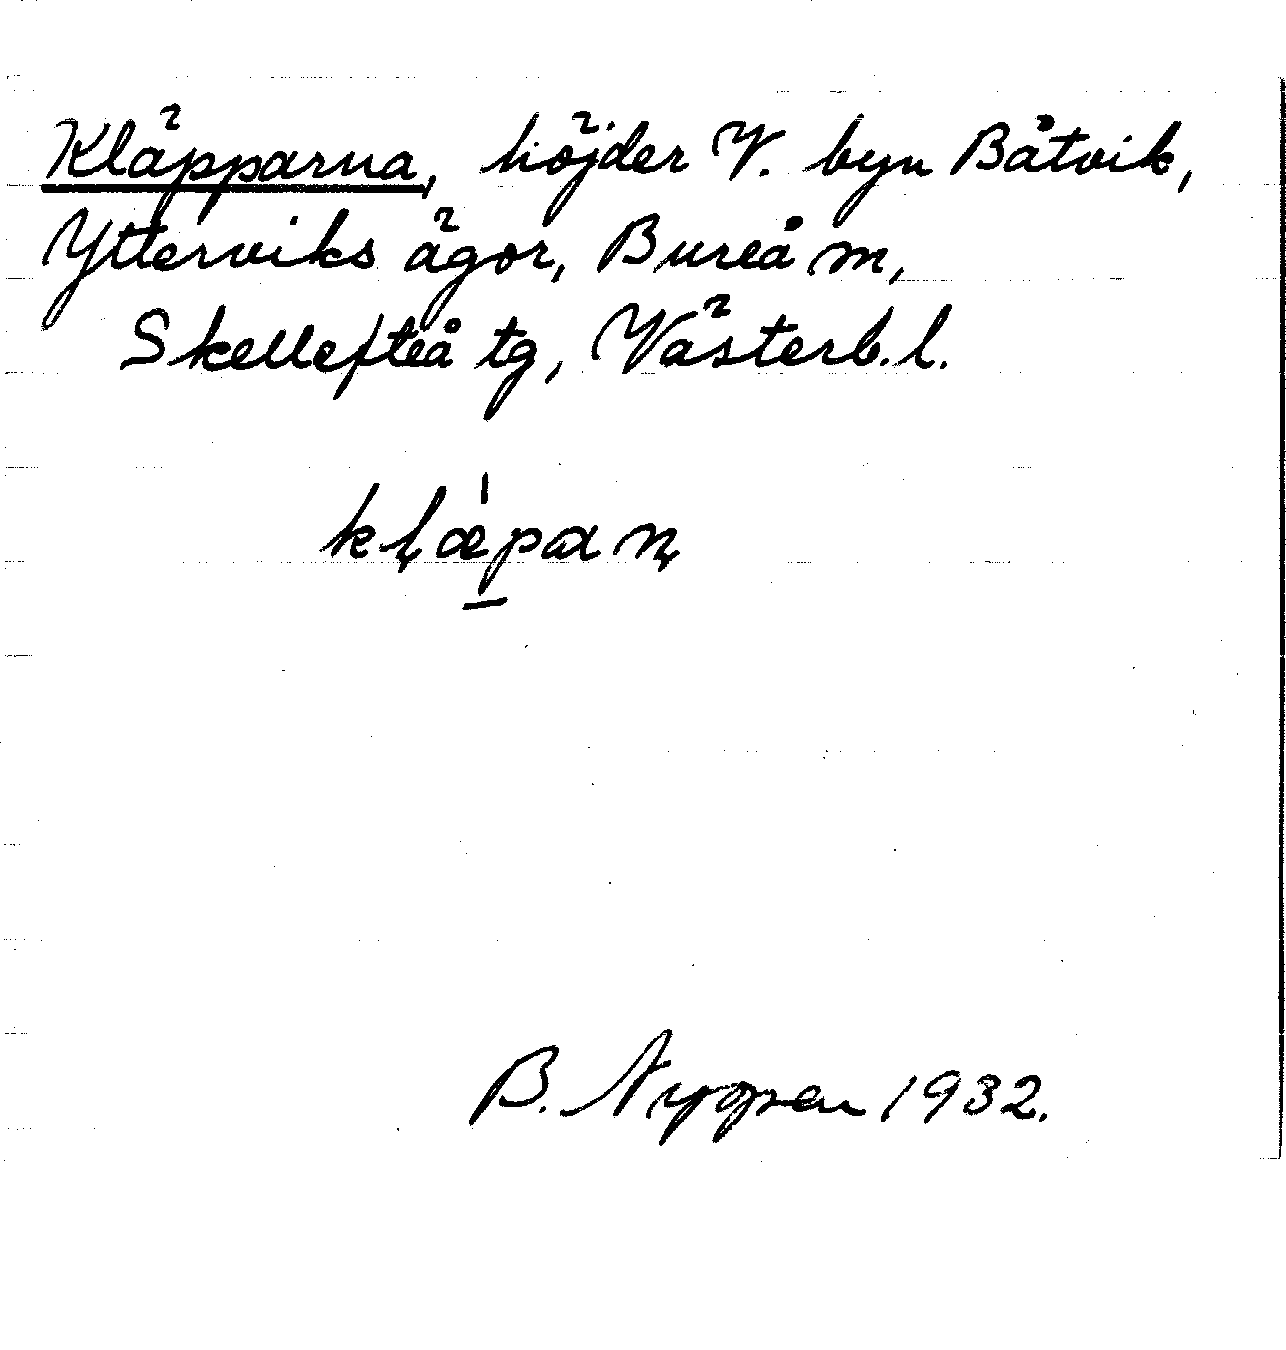 Kläpparna, höjder V. byn Båtvik,
Ytterviks ägor, Bureå m,
Skellefteå tg, Västerb.l.
kḷæ̀paṇ
B. 1932.